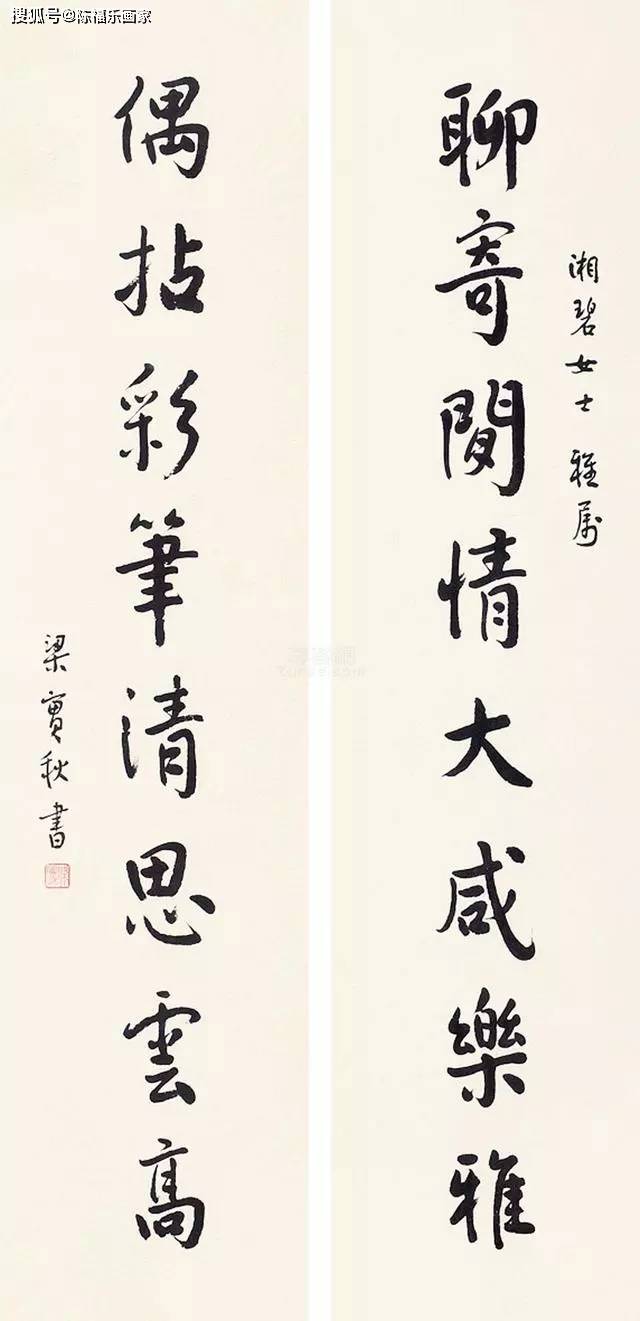 搜狐号@陈福乐画家
湘碧女士 雅属
聊寄閒情大咸樂雅
偶拈彩筆清思雲高
梁實秋書